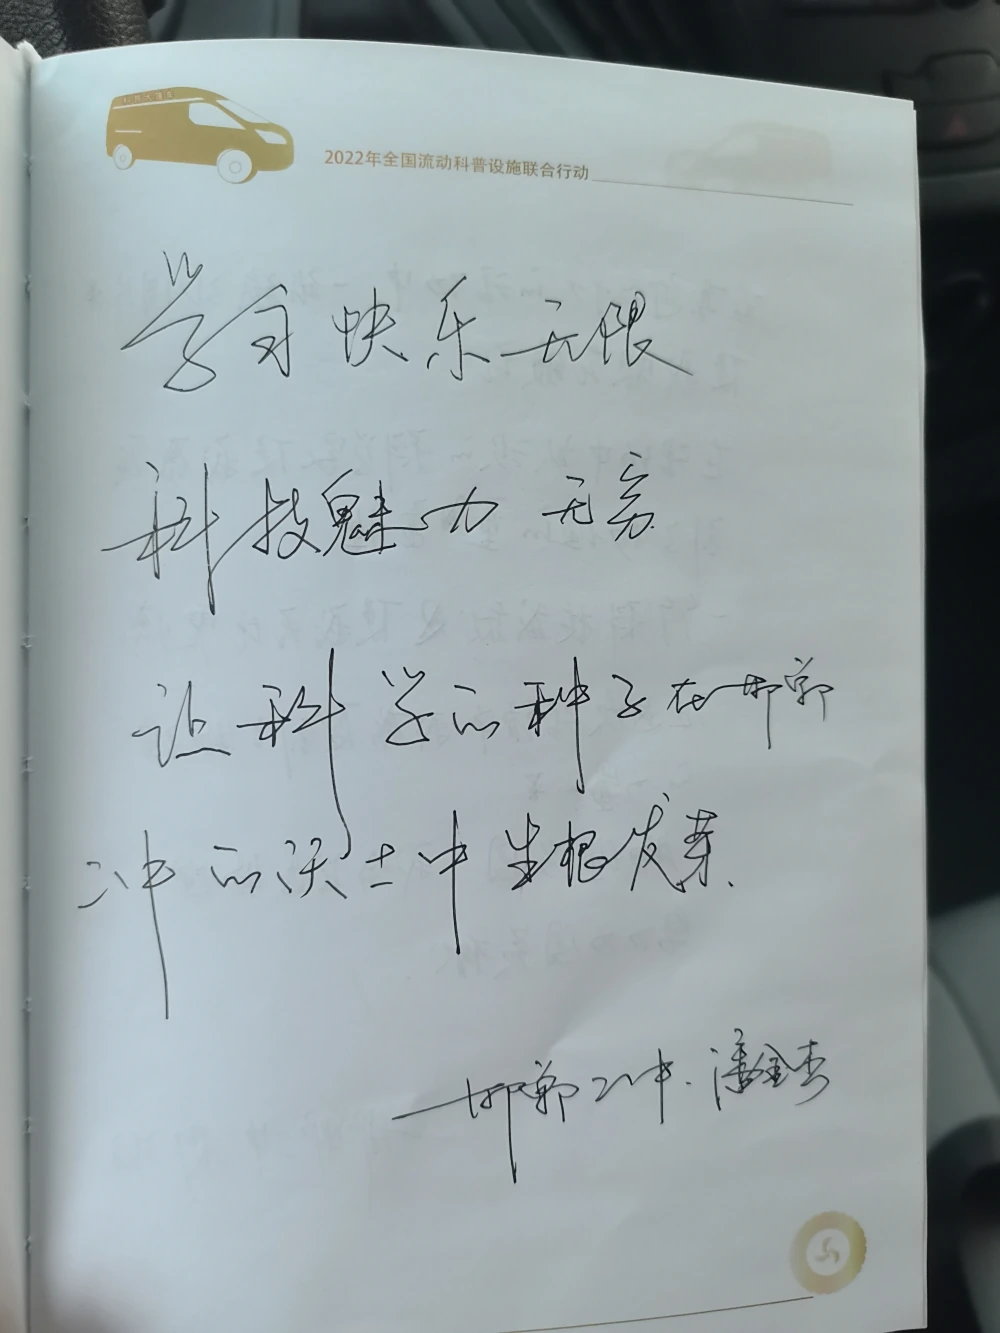 2022年全国流动科普设施联合行动
学习快乐无限
科技魅力无穷
让科学的种子在邯郸
二中的沃土中生根发芽.
邯郸二中.潘金杰